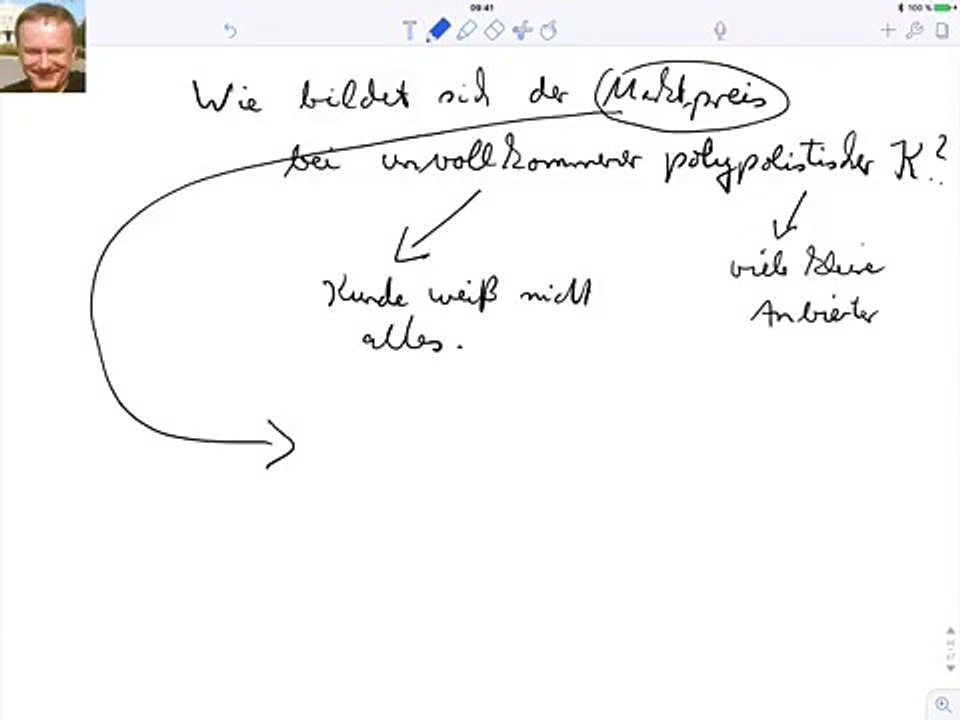 09:41
100 %
T
Wie bildet sich der Marktpreis
bei unvollkommener polypolistischer K?
Kunde weiß nicht
alles.
viele kleine
Anbieter